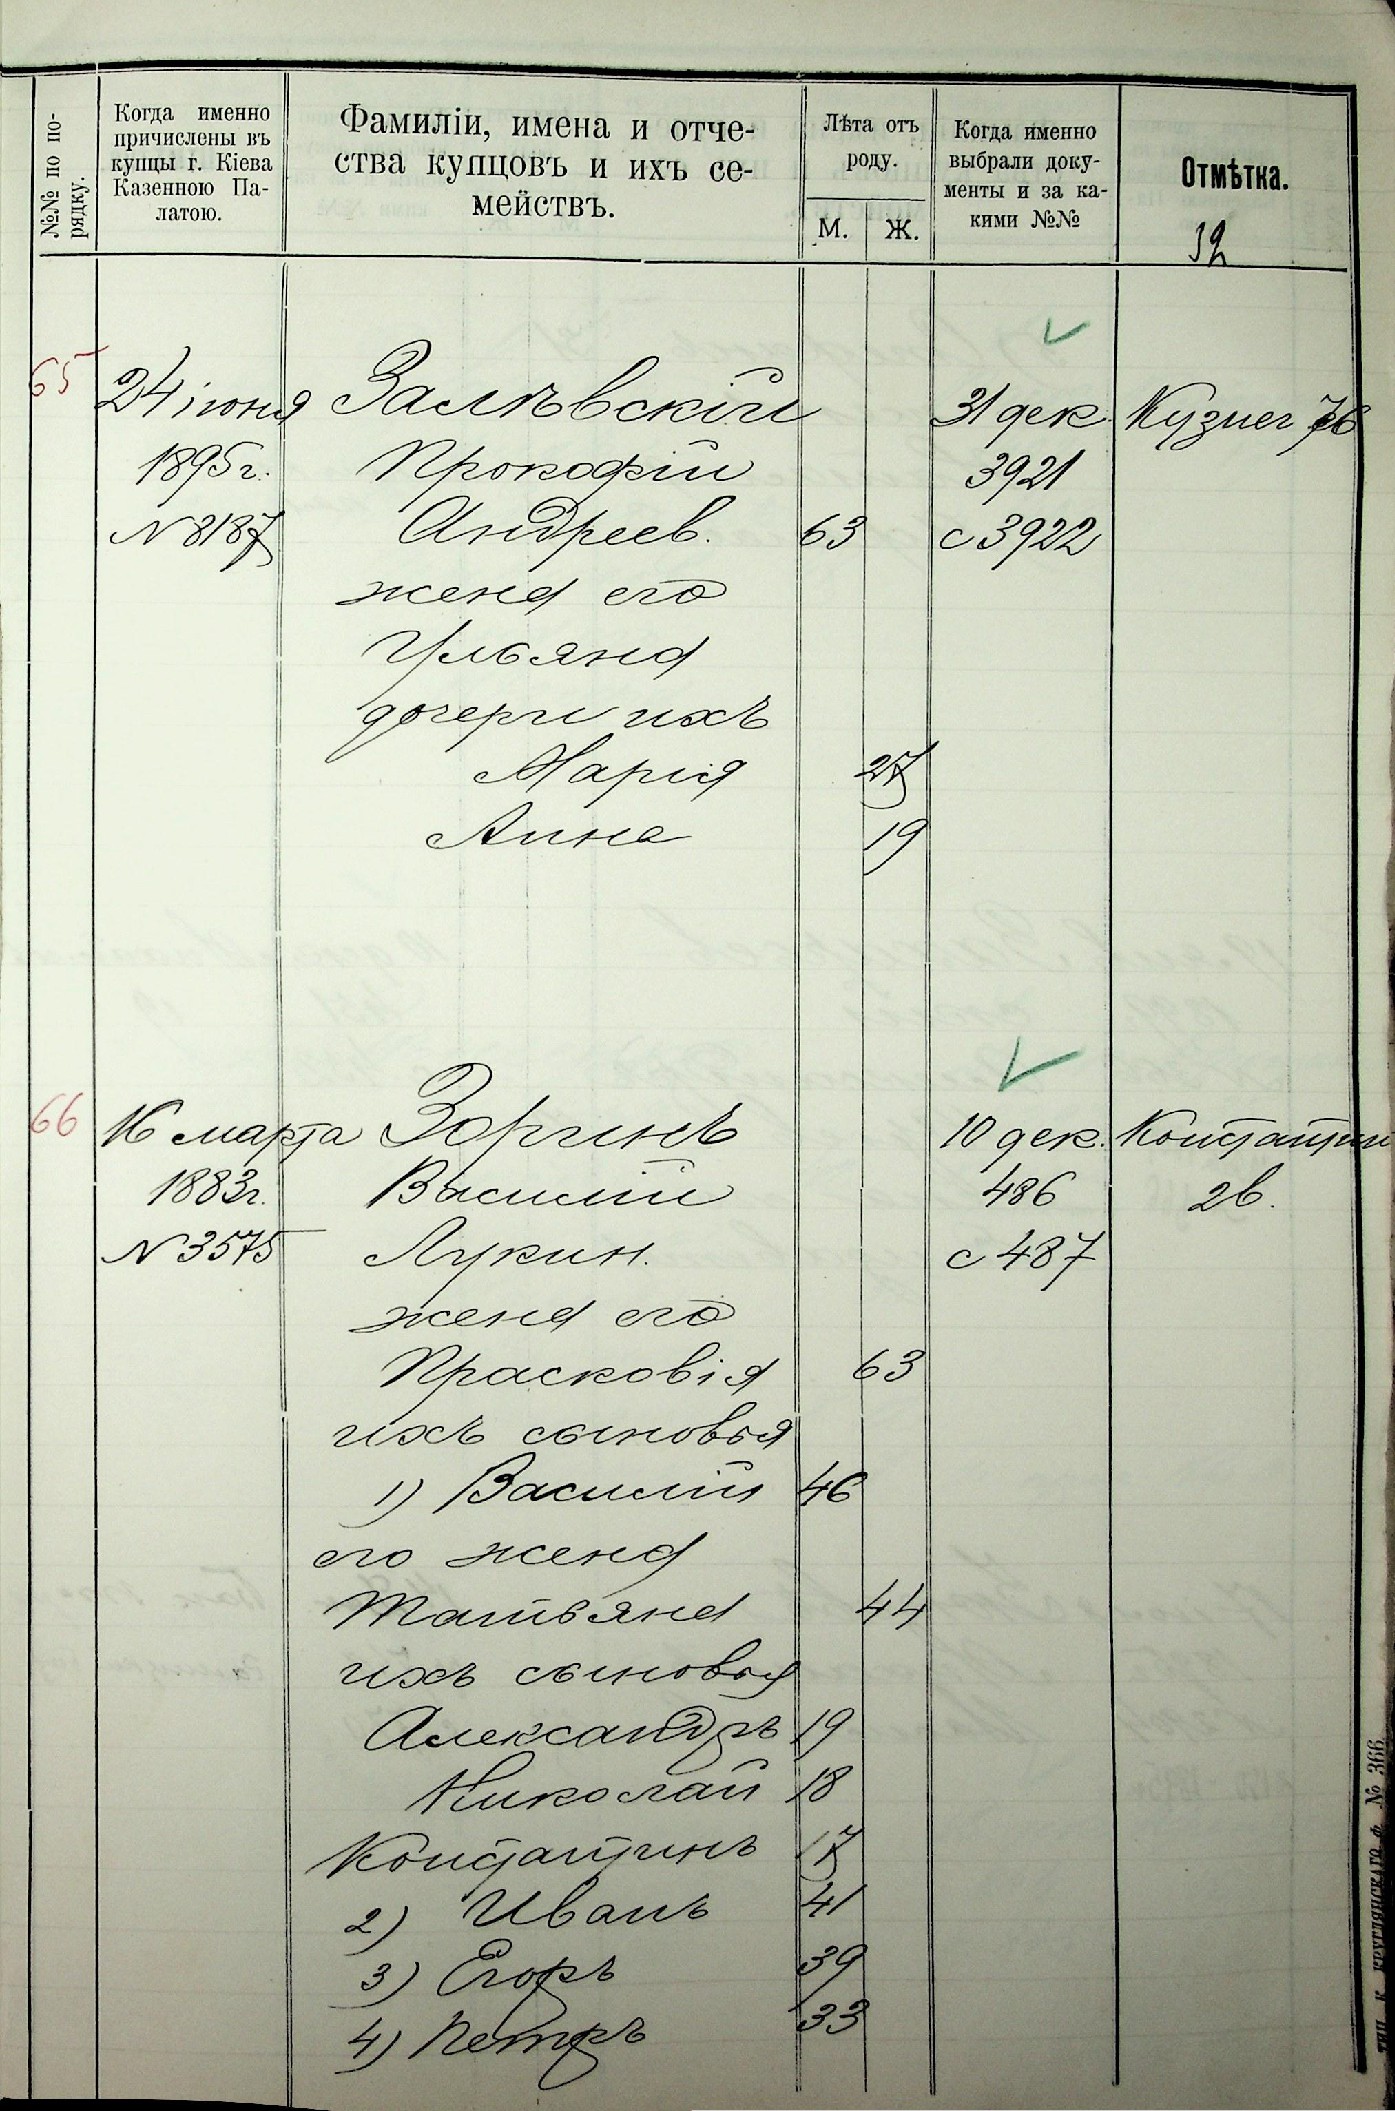 №№ по по-
рядку.
Когда именно
причислены въ
купцы г. Кіева
Казенною Па-
латою.
Фамиліи, имена и отче-
ства купцовъ и ихъ се-
мействъ.
Лѣта отъ
роду.
М.
Ж.
Когда именно
выбрали доку-
менты и за ка-
кими №№
Отмѣтка.
39
65
24 іюня
1895 г.
N 8187
Залѣвскій
Прокофій
Андреев. 63
жена его
Ульяна
дочери ихъ
Марія 27
Анна 19
31 дек.
3921
с 3922
Кузнеч 76
66
16 марта
1883 г.
N 3575
Зоринъ
Василій
Лукин.
жена его
Прасковія 63
ихъ сыновья
1) Василій 46
его жена
Татьяна 44
ихъ сыновья
Александръ 19
Николай 18
Константинъ 17
2) Иванъ 41
3) Егоръ 39
4) Петръ 33
10 дек.
486
с 487
Константин
2в.
ТИП. К. КРУГЛЯНСКАГО. Ф № 366